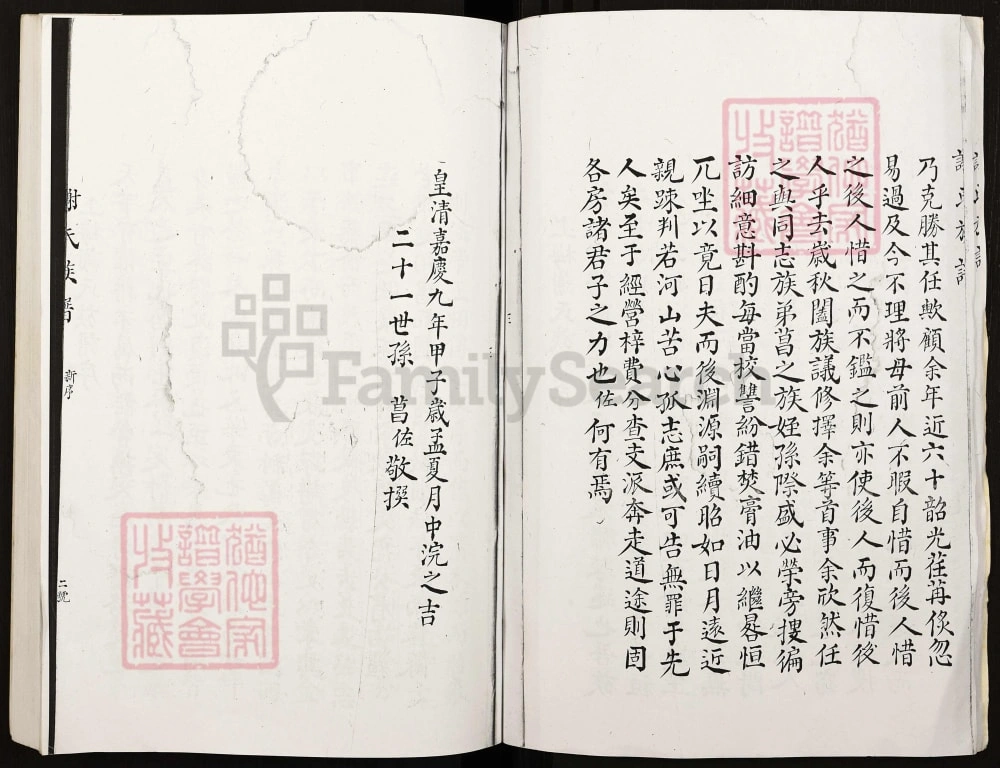 乃克勝其任歟顧余年近六十韶光荏苒倐忽
易過及今不理將毋前人不暇自惜而後人惜
之後人惜之而不鑑之則亦使後人而復惜後
人乎去歲秋闔族議修擇余等首事余欣然任
之與同志族弟菖之族姪孫際盛必榮旁搜徧
訪細意斟酌每當校讐紛錯焚膏油以繼晷恒
兀坐以竟日夫而後淵源嗣續昭如日月遠近
親疎判若河山苦心孤志庶或可告無罪于先
人矣至于經營梓費分查支派奔走道途則固
各房諸君子之力也佐何有焉
皇清嘉慶九年甲子歲孟夏月中浣之吉
二十一世孫 菖佐敬撰
謝氏族譜 新序 二號
FamilySearch